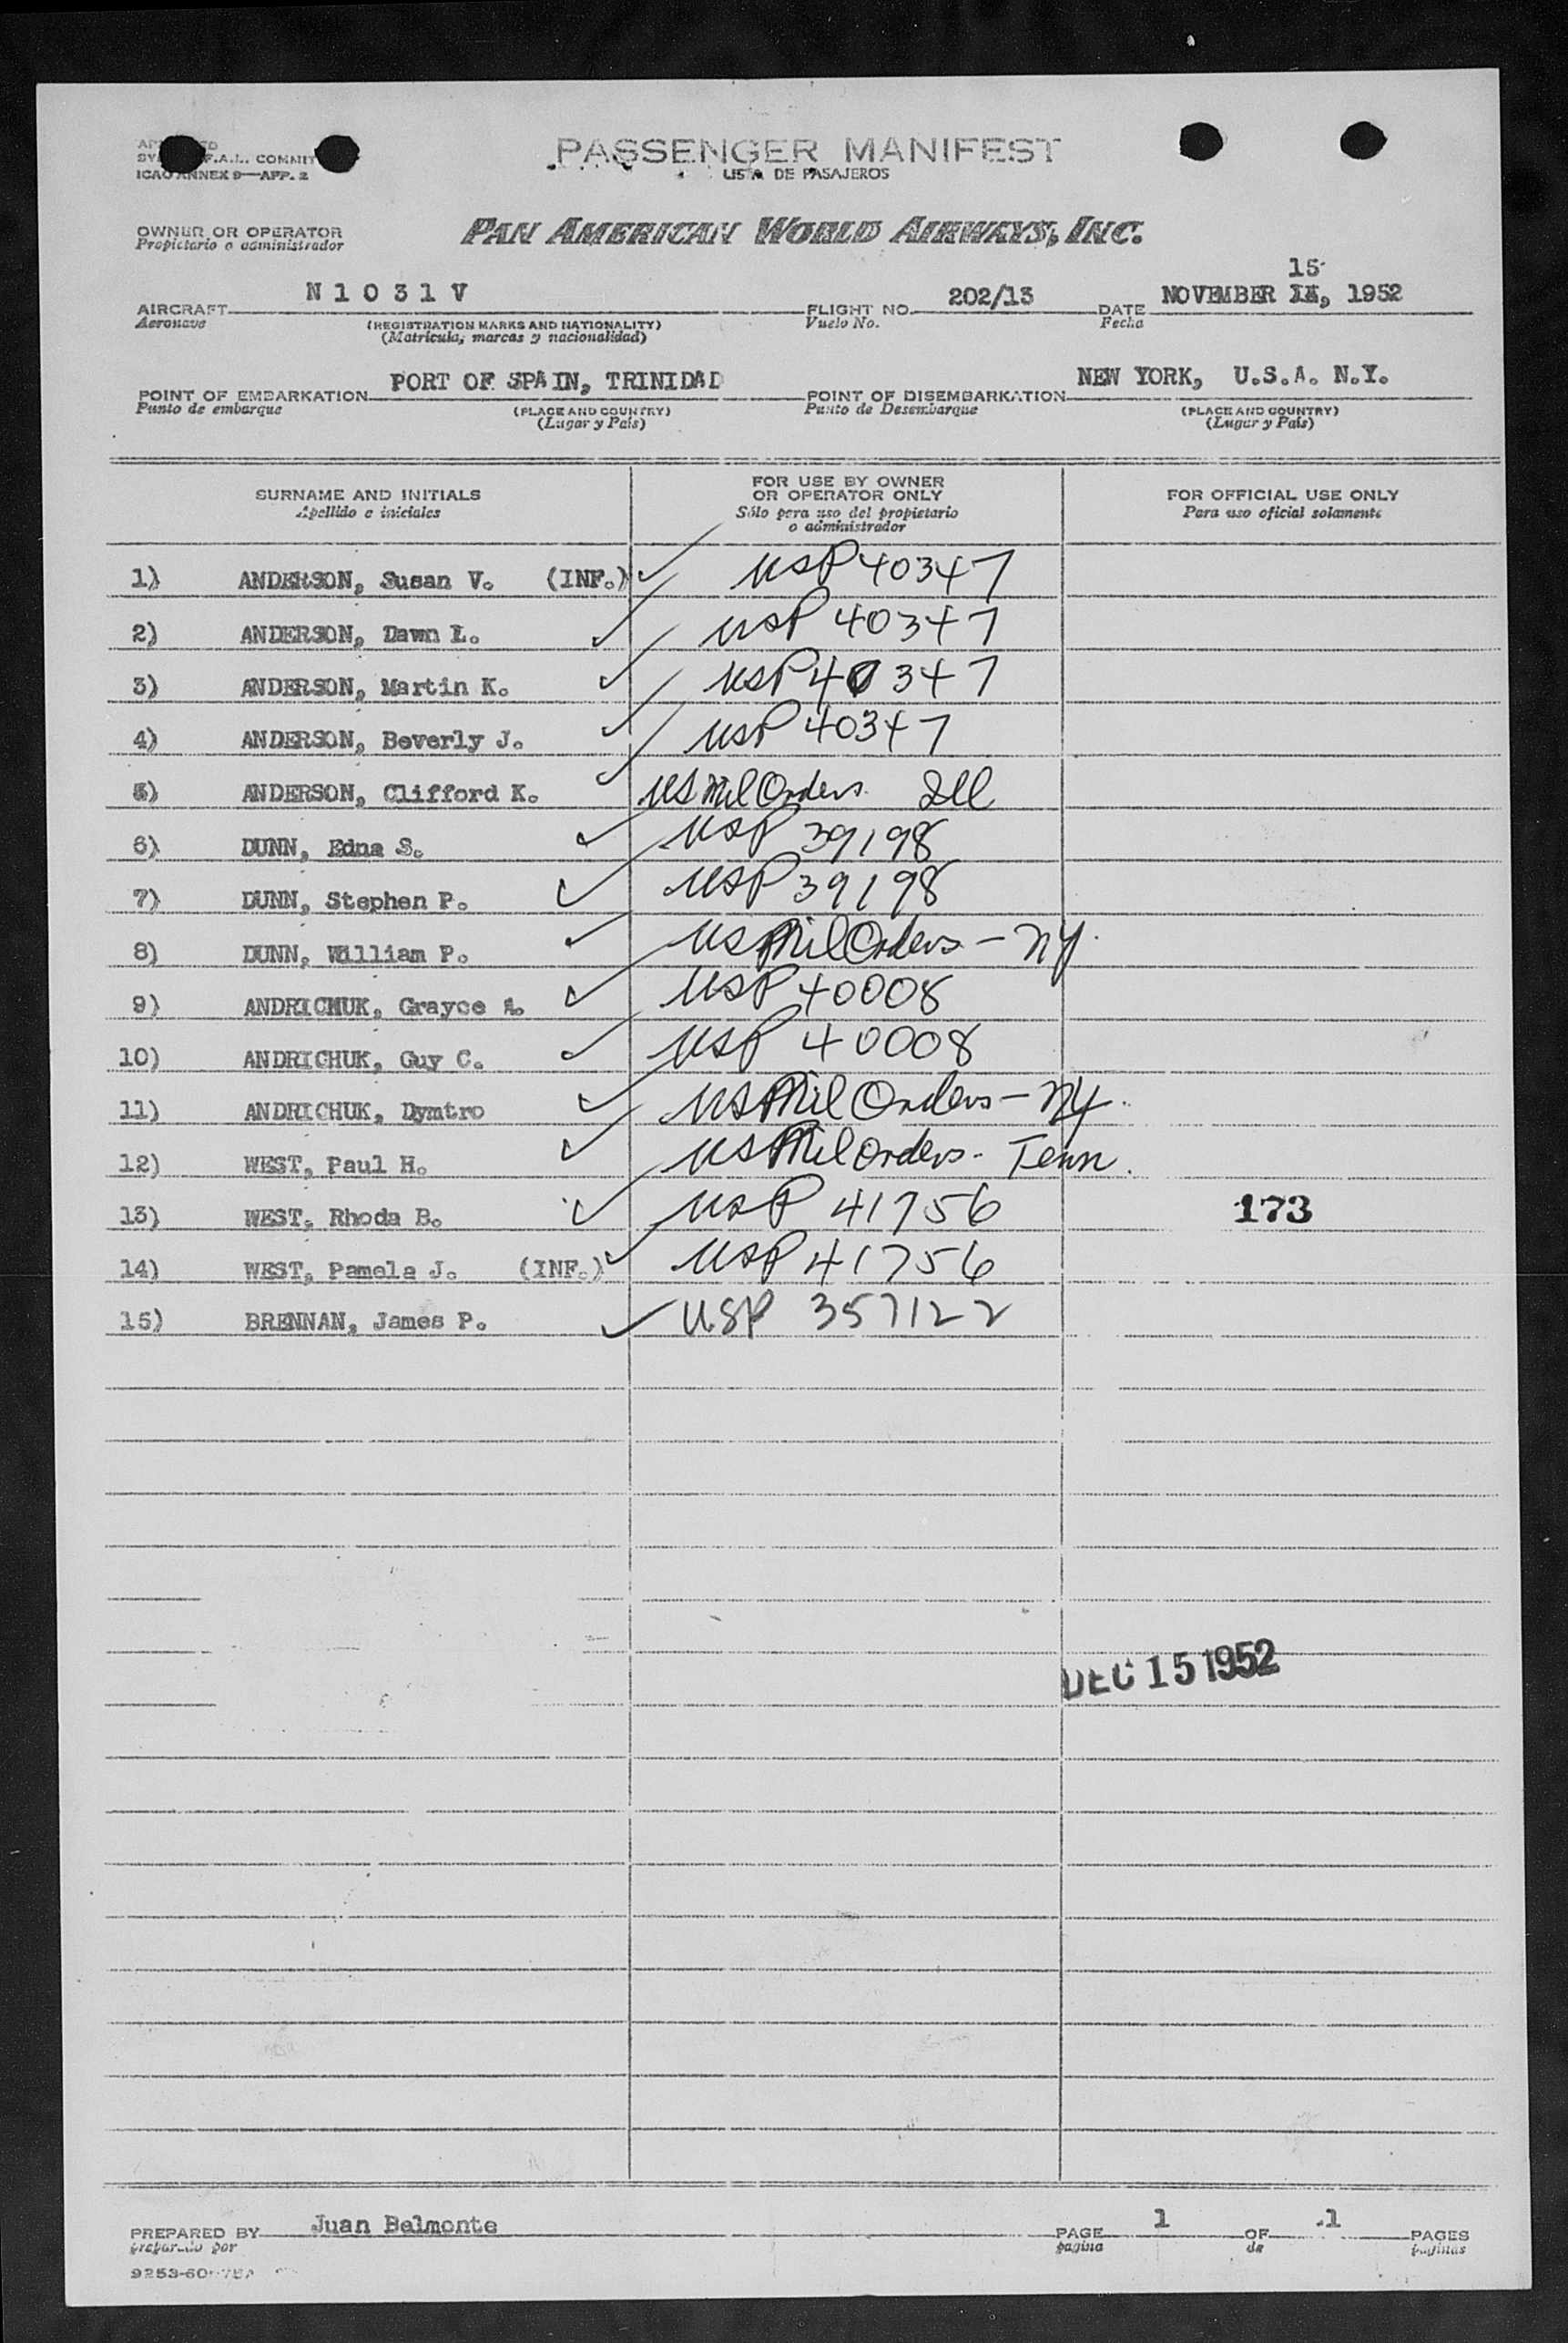 F.A.L. COMMIT
ICAO ANNEX 9—APP. 2
PASSENGER MANIFEST
LISTA DE PASAJEROS
OWNER OR OPERATOR
Propietario o administrador
PAN AMERICAN WORLD AIRWAYS, INC.
15
AIRCRAFT N 1 0 3 1 V FLIGHT NO. 202/13 DATE NOVEMBER 14, 1952
Aeronave (REGISTRATION MARKS AND NATIONALITY) Vuelo No. Fecha
(Matricula, marcas y nacionalidad)
POINT OF EMBARKATION PORT OF SPAIN, TRINIDAD POINT OF DISEMBARKATION NEW YORK, U.S.A. N.Y.
Punto de embarque (PLACE AND COUNTRY) Punto de Desembarque (PLACE AND COUNTRY)
(Lugar y País) (Lugar y País)
SURNAME AND INITIALS
Apellido e iniciales
FOR USE BY OWNER
OR OPERATOR ONLY
Sólo para uso del propietario
o administrador
FOR OFFICIAL USE ONLY
Para uso oficial solamente
1) ANDERSON, Susan V. (INF.) ✓ USP 40347
2) ANDERSON, Dawn L. ✓ USP 40347
3) ANDERSON, Martin K. ✓ USP 40347
4) ANDERSON, Beverly J. ✓ USP 40347
5) ANDERSON, Clifford K. ✓ US Mil Orders Ill
6) DUNN, Edna S. ✓ USP 39198
7) DUNN, Stephen P. ✓ USP 39198
8) DUNN, William P. ✓ US Mil Orders - NY.
9) ANDRICHUK, Grayce A. ✓ USP 40008
10) ANDRICHUK, Guy C. ✓ USP 40008
11) ANDRICHUK, Dymtro ✓ US Mil Orders - NY.
12) WEST, Paul H. ✓ US Mil Orders - Tenn.
13) WEST, Rhoda B. ✓ USP 41756 173
14) WEST, Pamela J. (INF.) ✓ USP 41756
15) BRENNAN, James P. ✓ USP 357122
DEC 15 1952
PREPARED BY Juan Belmonte PAGE 1 OF 1 PAGES
preparado por pagina de paginas